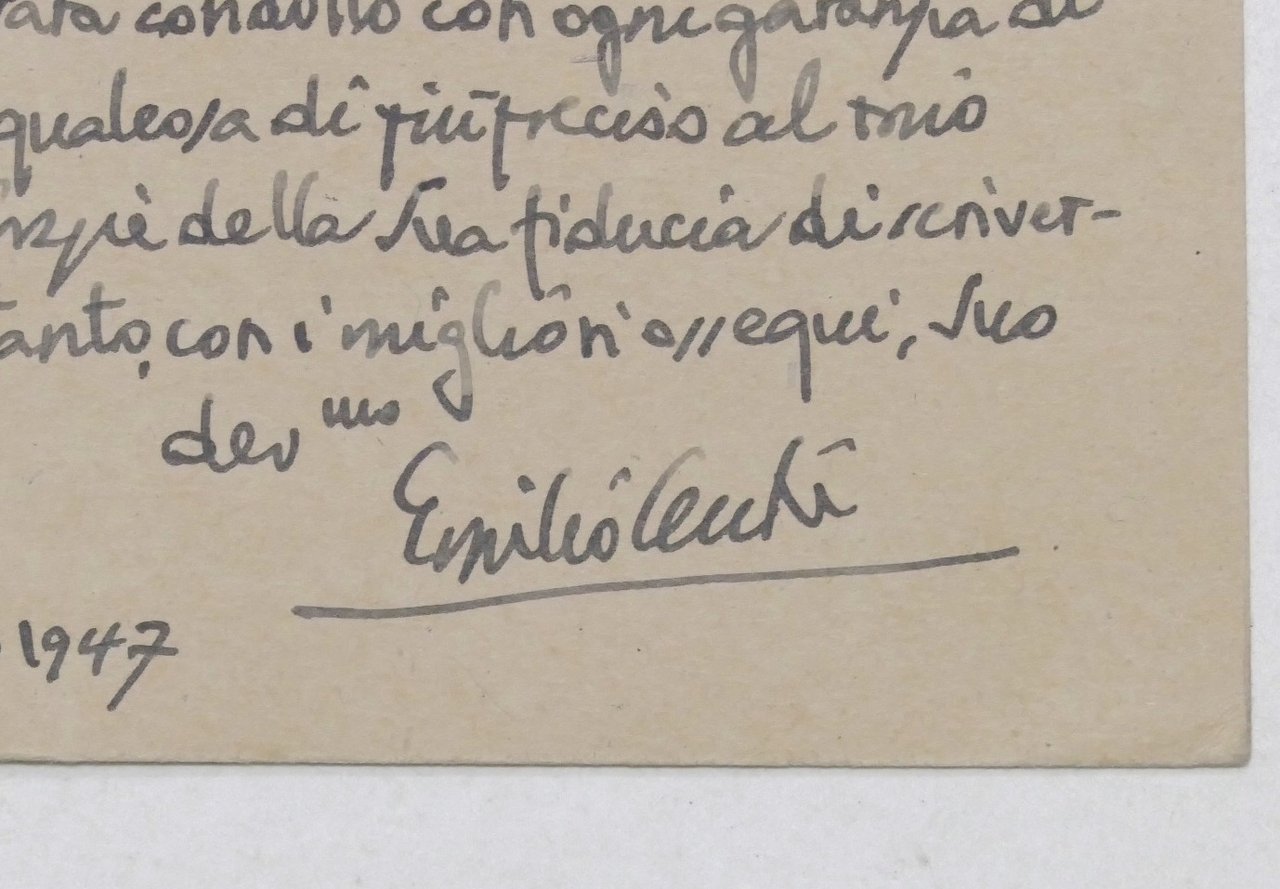 condotto con ogni garanzia di
qualcosa di più preciso al mio
della Sua fiducia di scriver-
tanto, con i migliori ossequi, Suo
dev mo
Emilio Cecchi
1947